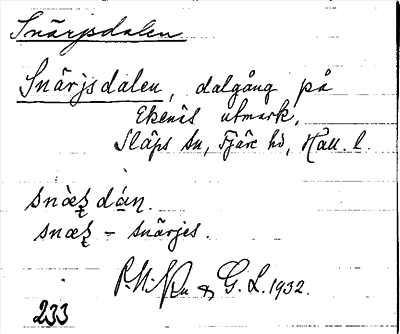 Snärjsdalen
Snärjsdalen, dalgång på
Ekenäs utmark,
Släps sn, Fjäre hd, Hall. l.
dán.
– snärjes.
& G. L. 1932.
233